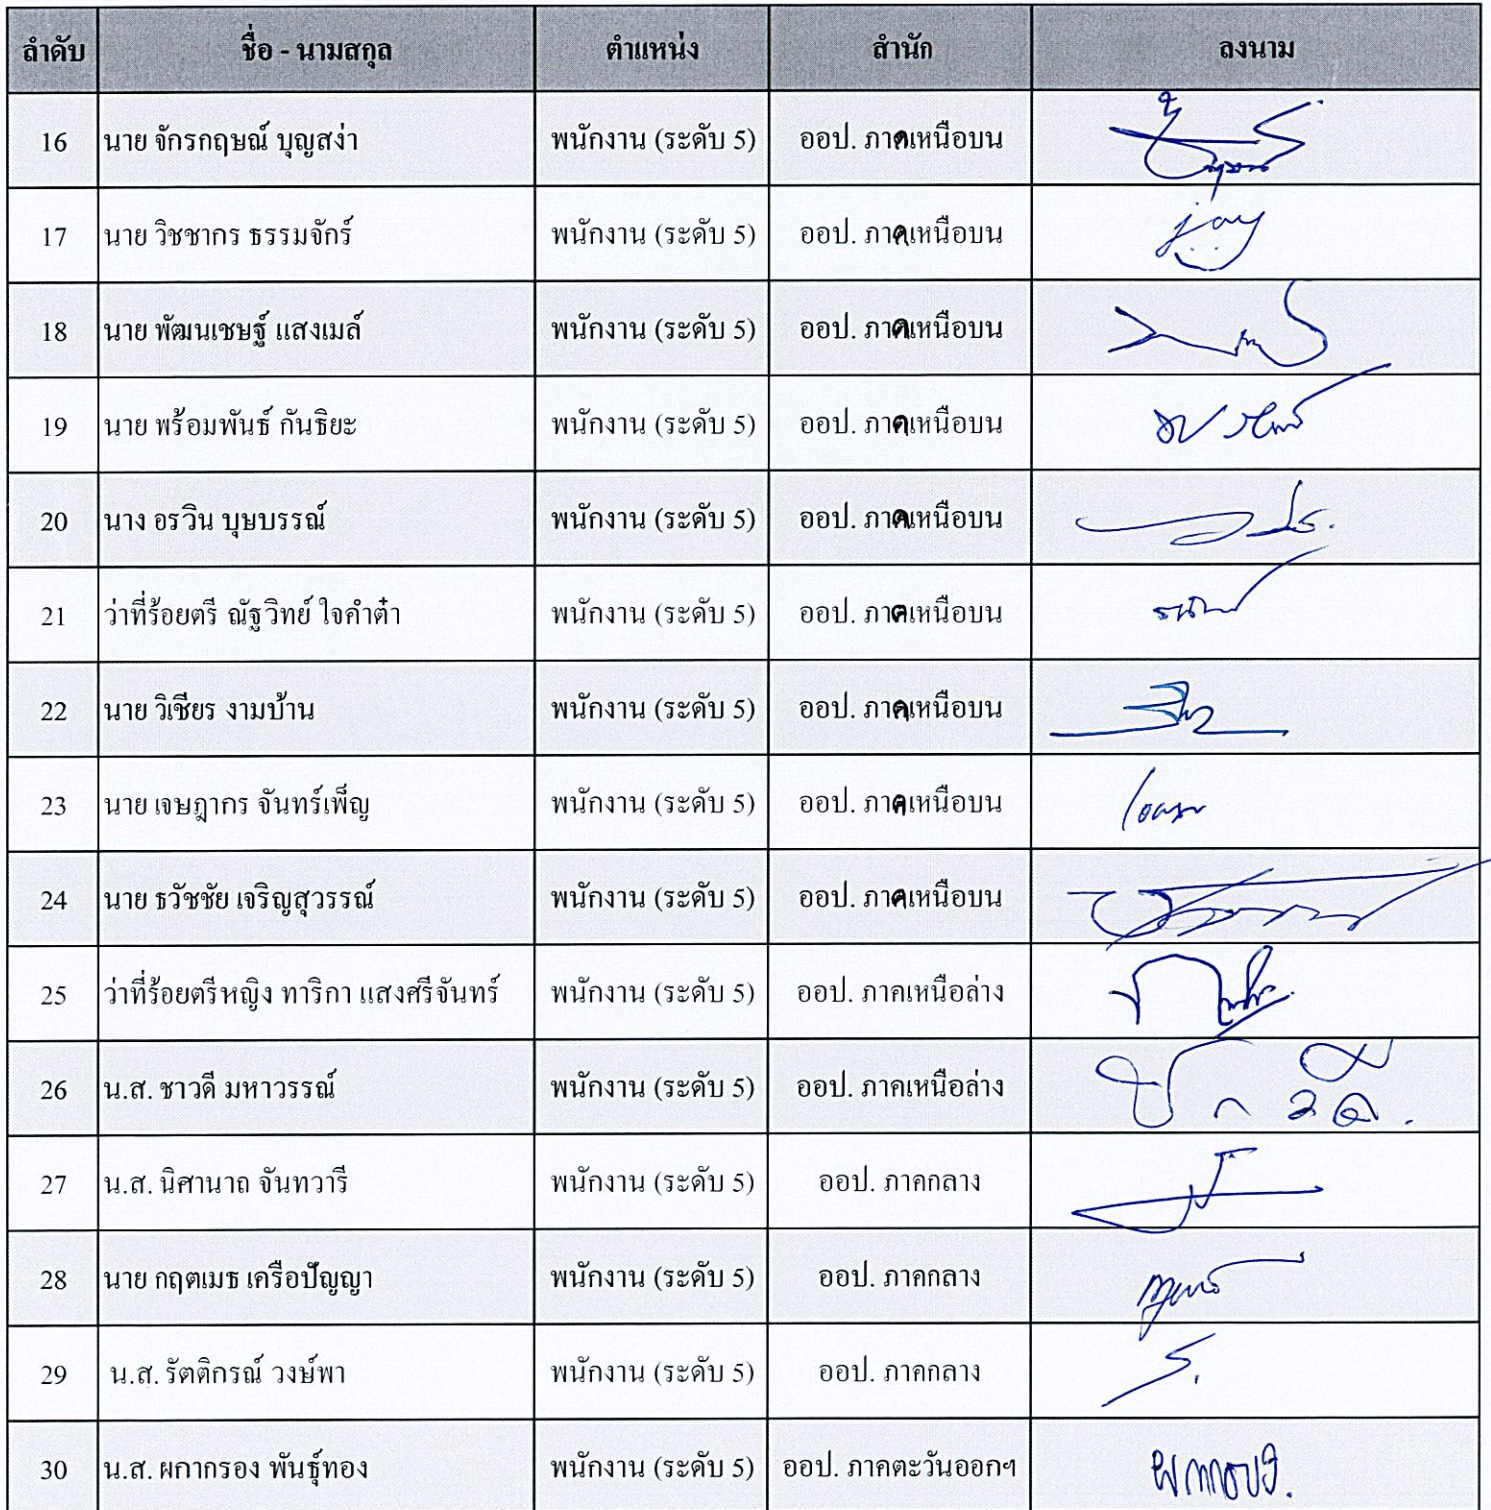 ลำดับ ชื่อ - นามสกุล ตำแหน่ง สำนัก ลงนาม
16 นาย จักรกฤษณ์ บุญสง่า พนักงาน (ระดับ 5) ออป. ภาคเหนือบน
17 นาย วิชชากร ธรรมจักร์ พนักงาน (ระดับ 5) ออป. ภาคเหนือบน
18 นาย พัฒนเชษฐ์ แสงเมล์ พนักงาน (ระดับ 5) ออป. ภาคเหนือบน
19 นาย พร้อมพันธ์ กันธิยะ พนักงาน (ระดับ 5) ออป. ภาคเหนือบน
20 นาง อรวิน บุษบรรณ์ พนักงาน (ระดับ 5) ออป. ภาคเหนือบน
21 ว่าที่ร้อยตรี ณัฐวิทย์ ใจคำต๋ำ พนักงาน (ระดับ 5) ออป. ภาคเหนือบน
22 นาย วิเชียร งามบ้าน พนักงาน (ระดับ 5) ออป. ภาคเหนือบน
23 นาย เจษฎากร จันทร์เพ็ญ พนักงาน (ระดับ 5) ออป. ภาคเหนือบน
24 นาย ธวัชชัย เจริญสุวรรณ์ พนักงาน (ระดับ 5) ออป. ภาคเหนือบน
25 ว่าที่ร้อยตรีหญิง ทาริกา แสงศรีจันทร์ พนักงาน (ระดับ 5) ออป. ภาคเหนือล่าง
26 น.ส. ชาวดี มหาวรรณ์ พนักงาน (ระดับ 5) ออป. ภาคเหนือล่าง
27 น.ส. นิศานาถ จันทวารี พนักงาน (ระดับ 5) ออป. ภาคกลาง
28 นาย กฤตเมธ เครือปัญญา พนักงาน (ระดับ 5) ออป. ภาคกลาง
29 น.ส. รัตติกรณ์ วงษ์พา พนักงาน (ระดับ 5) ออป. ภาคกลาง
30 น.ส. ผกากรอง พันธุ์ทอง พนักงาน (ระดับ 5) ออป. ภาคตะวันออกฯ